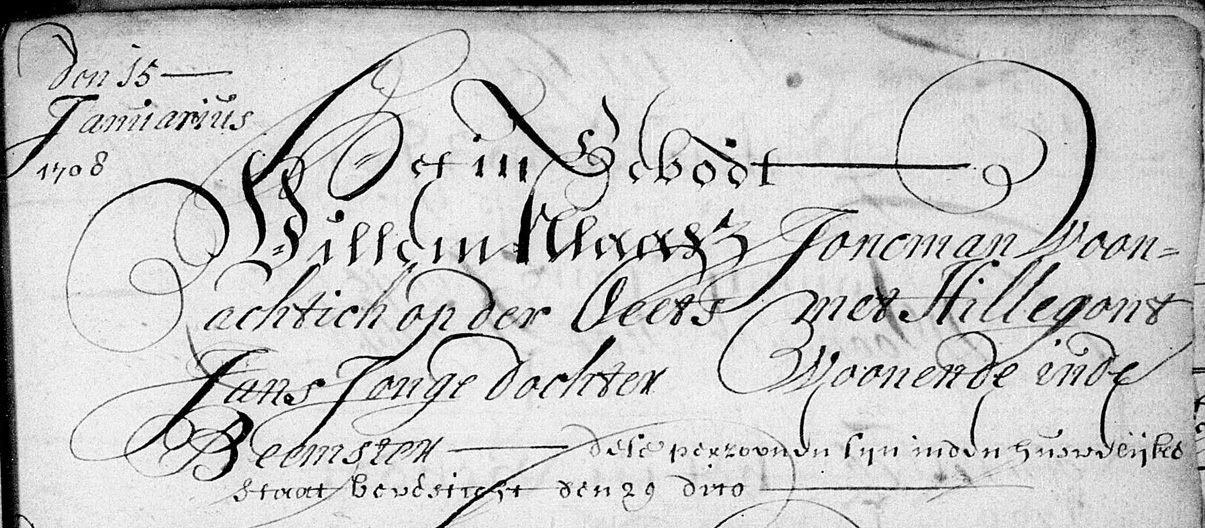 den 15
Januarius
1708
Het iii Gebodt
Willem Klaasz Joncman Woon=
achtich op der Beets met Hillegont
Jans Jonge dochter Woonende inde
Beemster dese perzoonen sijn inden huwelijke
staat bevesticht den 29 dito